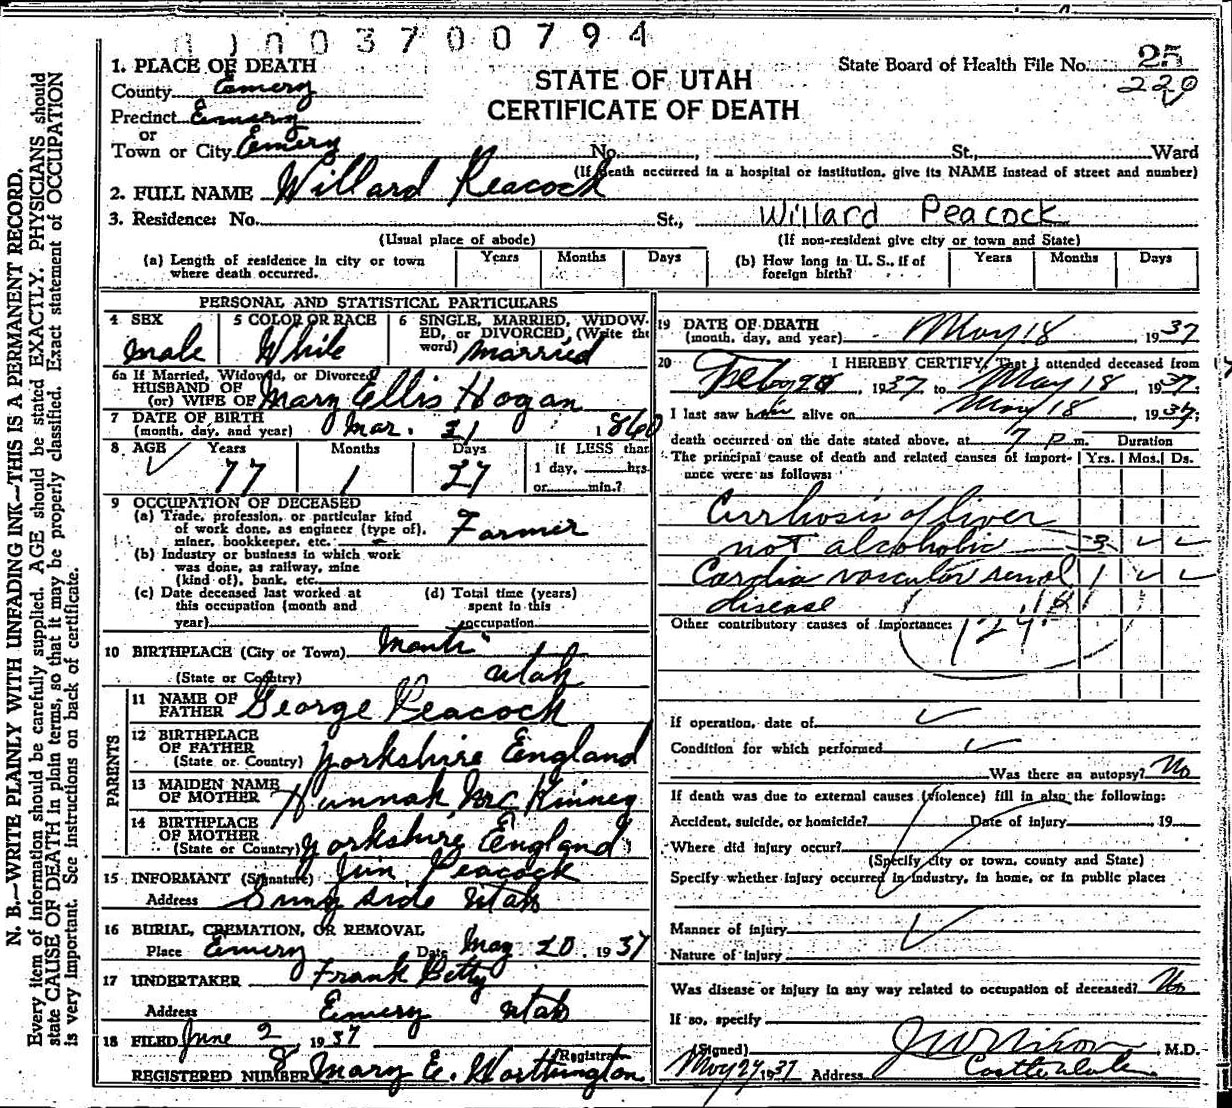 0003700794
STATE OF UTAH
CERTIFICATE OF DEATH
State Board of Health File No. 25
220
1. PLACE OF DEATH
County Emery
Precinct Emery
or
Town or City Emery No. , St., Ward
(If death occurred in a hospital or institution, give its NAME instead of street and number)
2. FULL NAME Willard Peacock
3. Residence: No. St., Willard Peacock
(Usual place of abode) (If non-resident give city or town and State)
(a) Length of residence in city or town where death occurred. Years Months Days
(b) How long in U. S., if of foreign birth? Years Months Days
PERSONAL AND STATISTICAL PARTICULARS
4 SEX Male
5 COLOR OR RACE White
6 SINGLE, MARRIED, WIDOWED, or DIVORCED, (Write the word) Married
6a If Married, Widowed, or Divorced
HUSBAND OF
(or) WIFE OF Mary Ellis Hogan
7 DATE OF BIRTH
(month, day, and year) Mar. 21 1860
8 AGE Years Months Days If LESS than
77 1 27 1 day, hrs.
or min.?
9 OCCUPATION OF DECEASED
(a) Trade, profession, or particular kind
of work done, as engineer (type of),
miner, bookkeeper, etc. Farmer
(b) Industry or business in which work
was done, as railway, mine
(kind of), bank, etc.
(c) Date deceased last worked at
this occupation (month and
year)
(d) Total time (years)
spent in this
occupation
10 BIRTHPLACE (City or Town) Manti
(State or Country) Utah
PARENTS
11 NAME OF
FATHER George Peacock
12 BIRTHPLACE
OF FATHER
(State or Country) Yorkshire England
13 MAIDEN NAME
OF MOTHER Hannah McKinney
14 BIRTHPLACE
OF MOTHER
(State or Country) Yorkshire England
15 INFORMANT (Signature) Jim Peacock
Address Sunnyside Utah
16 BURIAL, CREMATION, OR REMOVAL
Place Emery Date May 20, 1937
17 UNDERTAKER Frank Betty
Address Emery Utah
18 FILED June 2 1937
(Registrar)
REGISTERED NUMBER 8 Mary E. Worthington
19 DATE OF DEATH
(month, day, and year) May 18 1937
20 I HEREBY CERTIFY, That I attended deceased from
Feby 20, 1937 to May 18, 1937.
I last saw him alive on May 18, 1937;
death occurred on the date stated above, at 7 P m. Duration
The principal cause of death and related causes of importance were as follows: Yrs. Mos. Ds.
Cirrhosis of liver
not alcoholic 3
Cardio vascular renal 1
disease
Other contributory causes of importance: 124
If operation, date of
Condition for which performed
Was there an autopsy? No
If death was due to external causes (violence) fill in also the following:
Accident, suicide, or homicide? Date of injury 19
Where did injury occur?
(Specify city or town, county and State)
Specify whether injury occurred in industry, in home, or in public place:
Manner of injury
Nature of injury
Was disease or injury in any way related to occupation of deceased? No
If so, specify
(Signed) J W Nixon, M.D.
May 27 1937 Address Castle Dale
N. B.—WRITE PLAINLY WITH UNFADING INK—THIS IS A PERMANENT RECORD.
Every item of information should be carefully supplied. AGE should be stated EXACTLY. PHYSICIANS should
state CAUSE OF DEATH in plain terms, so that it may be properly classified. Exact statement of OCCUPATION
is very important. See instructions on back of certificate.